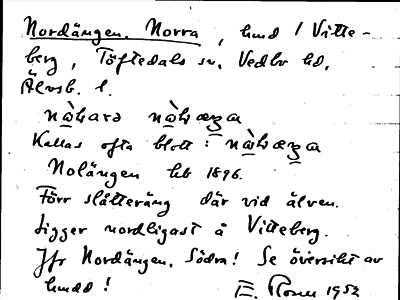 Nordängen, Norra, hmd / Vitte-
berg, Töftedals sn. Vedbo hd.
Älvsb. l.
nàhara nàhæʒa
Kallas ofta blott: nàhæʒa
Nolängen hb 1896.
Förr slåtteräng där vid älven.
Ligger nordligast å Vitteberg.
Jfr Nordängen, Södra! Se översikt av
hmdd! E. Rosén 1952